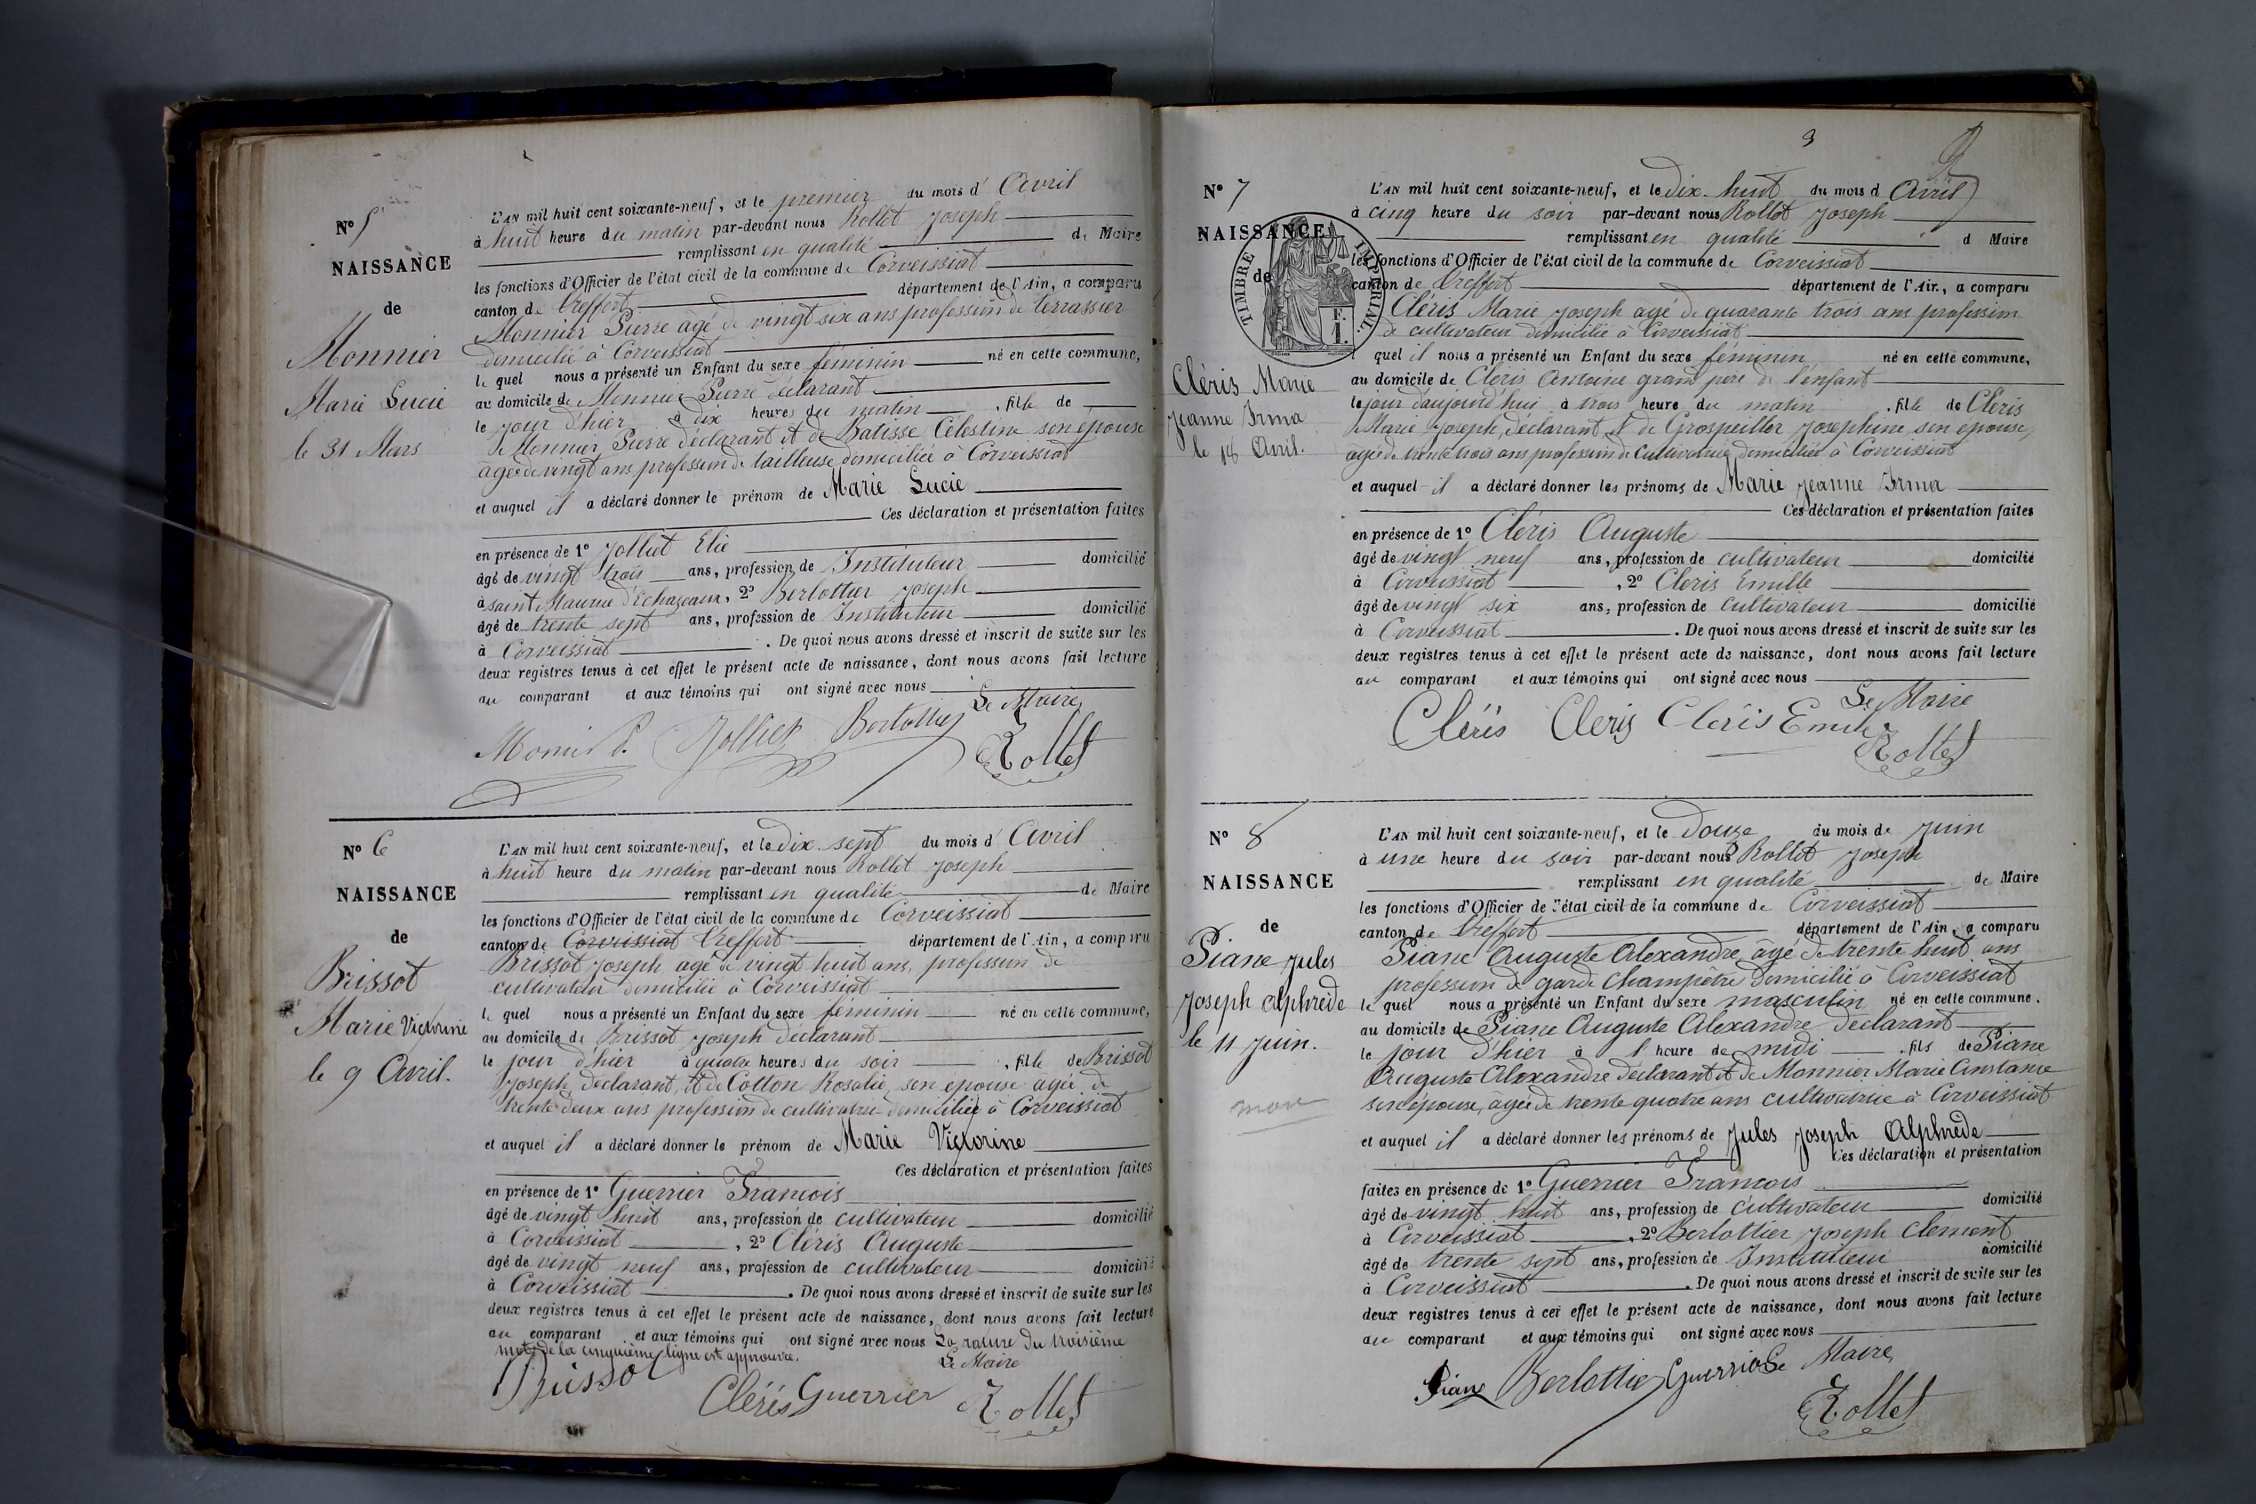 N° 5
NAISSANCE
de
Monnier
Marie Lucie
le 31 Mars
L'AN mil huit cent soixante-neuf, et le premier du mois d' Avril
à huit heure du matin par-devant nous Rollet Joseph
remplissant en qualité de Maire
les fonctions d'Officier de l'état civil de la commune de Corveissiat
canton de Treffort département de l'Ain, a comparu
Monnier Pierre âgé de vingt six ans profession de terrassier
domicilié à Corveissiat
le quel nous a présenté un Enfant du sexe féminin né en cette commune,
au domicile de Monnier Pierre déclarant
le jour d'hier à dix heures du matin, fille de
Monnier Pierre déclarant et de Batisse Célestine son épouse
agée de vingt ans profession de tailleuse domiciliée à Corveissiat
et auquel il a déclaré donner le prénom de Marie Lucie
Ces déclaration et présentation faites
en présence de 1° Jolliet Elie
âgé de vingt trois ans, profession de Instituteur domicilié
à saint Maurice d'Echazeaux, 2° Berlottier Joseph
âgé de trente sept ans, profession de Instituteur domicilié
à Corveissiat. De quoi nous avons dressé et inscrit de suite sur les
deux registres tenus à cet effet le présent acte de naissance, dont nous avons fait lecture
au comparant et aux témoins qui ont signé avec nous
Le Maire
Jolliet Berlottier Rollet
N° 6
NAISSANCE
de
Brissot
Marie Victorine
le 9 Avril.
L'AN mil huit cent soixante-neuf, et le dix-sept du mois d' Avril
à huit heure du matin par-devant nous Rollet Joseph
remplissant en qualité de Maire
les fonctions d'Officier de l'état civil de la commune de Corveissiat
canton de Corveissiat Treffort département de l'Ain, a comparu
Brissot Joseph agé de vingt huit ans, profession de
cultivateur domicilié à Corveissiat
le quel nous a présenté un Enfant du sexe féminin né en cette commune,
au domicile de Brissot Joseph déclarant
le jour d'hier à quatre heures du soir, fille de Brissot
Joseph déclarant, et de Cotton Rosalie, son épouse agée de
trente deux ans profession de cultivatrice domiciliée à Corveissiat
et auquel il a déclaré donner le prénom de Marie Victorine
Ces déclaration et présentation faites
en présence de 1° Guerrier Francois
âgé de vingt huit ans, profession de cultivateur domicilié
à Corveissiat, 2° Cléris Auguste
âgé de vingt neuf ans, profession de cultivateur domicilié
à Corveissiat. De quoi nous avons dressé et inscrit de suite sur les
deux registres tenus à cet effet le présent acte de naissance, dont nous avons fait lecture
au comparant et aux témoins qui ont signé avec nous La rature du troisième
mot de la cinquième ligne est approuvée.
Le Maire
Brissot Cléris Guerrier Rollet
3
N° 7
NAISSANCE
de
TIMBRE IMPERIAL.
F. 1.
Cléris Marie
Jeanne Irma
le 18 Avril.
L'AN mil huit cent soixante-neuf, et le dix-huit du mois d Avril
à cinq heure du soir par-devant nous Rollet Joseph
remplissant en qualité d Maire
les fonctions d'Officier de l'état civil de la commune de Corveissiat
canton de Treffort département de l'Ain, a comparu
Cléris Marie Joseph agé de quarante trois ans profession
de cultivateur domicilié à Corveissiat
l quel il nous a présenté un Enfant du sexe féminin né en cette commune,
au domicile de Cléris Antoine grand père de l'enfant
le jour d'aujourd'hui à trois heure du matin, fille de Cléris
Marie Joseph, déclarant et de Grospeiller Josephine son epouse,
agée de trente trois ans profession de Cultivatrice domiciliée à Corveissiat
et auquel il a déclaré donner les prénoms de Marie Jeanne Irma
Ces déclaration et présentation faites
en présence de 1° Cléris Auguste
âgé de vingt neuf ans, profession de cultivateur domicilié
à Corveissiat, 2° Cleris Emille
âgé de vingt six ans, profession de cultivateur domicilié
à Corveissiat. De quoi nous avons dressé et inscrit de suite sur les
deux registres tenus à cet effet le présent acte de naissance, dont nous avons fait lecture
au comparant et aux témoins qui ont signé avec nous
Le Maire
Cléris Cleris Cleris Emile Rollet
N° 8
NAISSANCE
de
Piane Jules
Joseph Alphrède
le 11 Juin.
L'AN mil huit cent soixante-neuf, et le Douze du mois de Juin
à une heure du soir par-devant nous Rollet Joseph
remplissant en qualité de Maire
les fonctions d'Officier de l'état civil de la commune de Corveissiat
canton de Treffort département de l'Ain, a comparu
Piane Auguste Alexandre, âgé de trente huit ans
profession de garde champêtre domicilié à Corveissiat
le quel nous a présenté un Enfant du sexe masculin né en cette commune.
au domicile de Piane Auguste Alexandre déclarant
le jour d'hier à 1 heure de midi, fils de Piane
Auguste Alexandre déclarant et de Monnier Marie Constance
son épouse, agée de trente quatre ans cultivatrice à Corveissiat
et auquel il a déclaré donner les prénoms de Jules Joseph Alphrède
Ces déclaration et présentation
faites en présence de 1° Guerrier Francois
âgé de vingt huit ans, profession de cultivateur domicilié
à Corveissiat, 2° Berlottier Joseph Clement
âgé de trente sept ans, profession de Instituteur domicilié
à Corveissiat. De quoi nous avons dressé et inscrit de suite sur les
deux registres tenus à cet effet le présent acte de naissance, dont nous avons fait lecture
au comparant et aux témoins qui ont signé avec nous
Piane Berlottier Guerrier Le Maire
Rollet